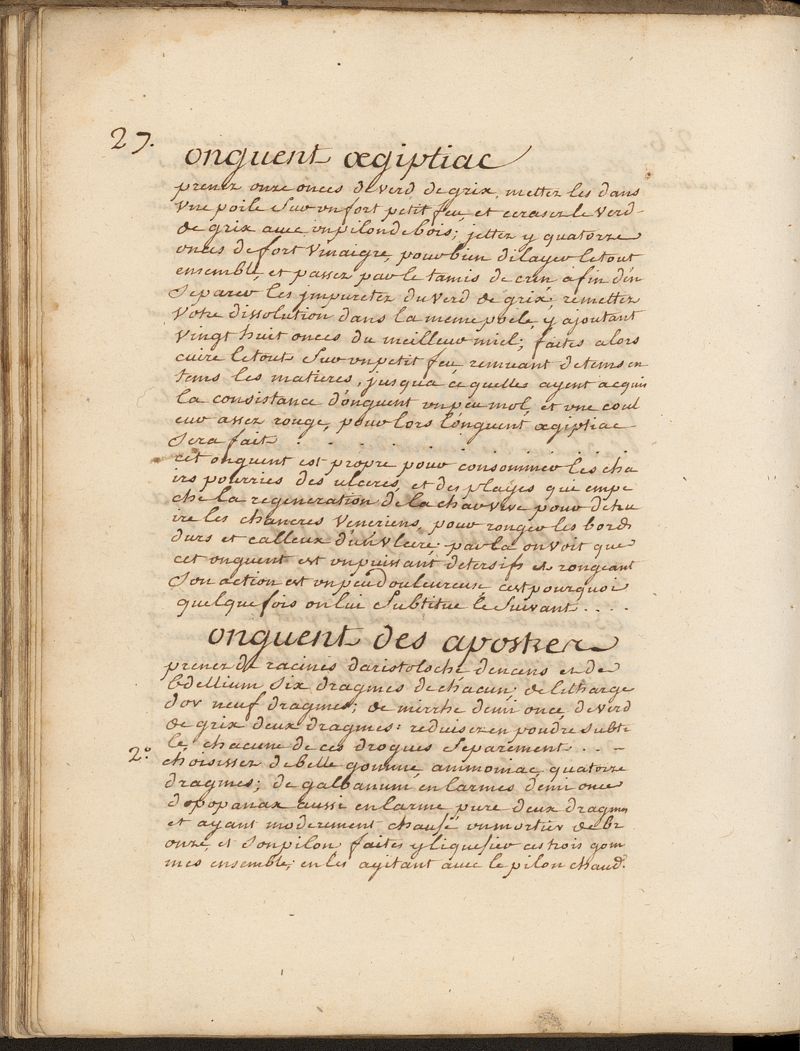 27.
onguent ægiptiac
prenez onze onces de verd de grix, mettez les dans
vne poile Sur un fort petit feu, et ecrasez le verd
de grix avec un pilon de bois; jettez y quatorze
onces de fort vinaigre, pour bien dilayer le tout
ensemble, et passez par le tamis de crin afin d'en
Separer les jmpuretez du verd de grix, remettez
votre dissolution dans la meme poële, y ajoutant
vingt huit onces du meilleur miel; faites alors
cuire le tout Sur un petit feu remuant de tems en
tems les matieres, jusqu'a ce quelles ayent acquis
la consistance d'onguent un peu mol, et vne coul
eur assez rouge, pour lors l'onguent ægiptiac
Sera fait . . . . . . . . . .
cet onguent est propre pour consommer les cha
irs pourries des ulceres, et des playes qui empe
che la regeneration de la chair vive pour detru
ire les chancres Veneriens, pour ronger les bords
durs et calleux d'un vlcere. par la on voit que
cet onguent est un puissant detersif et rongeant
Son action est un peu douleureuse c'est pourquoi
quelque fois on lui Subtitue le Suivant . . . .
onguent des apostres
prenez de racines daristolsche d'encens et de
bdellium Six dragmes de chacun; de litharge
d'or neuf dragmes; de mirrhe demi once, de verd
de grix deux dragmes: reduisez en poudre Subti
le, chacune de ces drogues Separement . . -
2.º choisissez de belle gomme ammoniac quatorze
dragmes; de galbanum en larmes demi once
d'opopanax aussi en larme pure deux dragmes
et ayant moderement chaufé un mortier de br
onze, et Son pilon faites y liquefier ces trois gom
mes ensemble; en les agitant avec le pilon chaud.